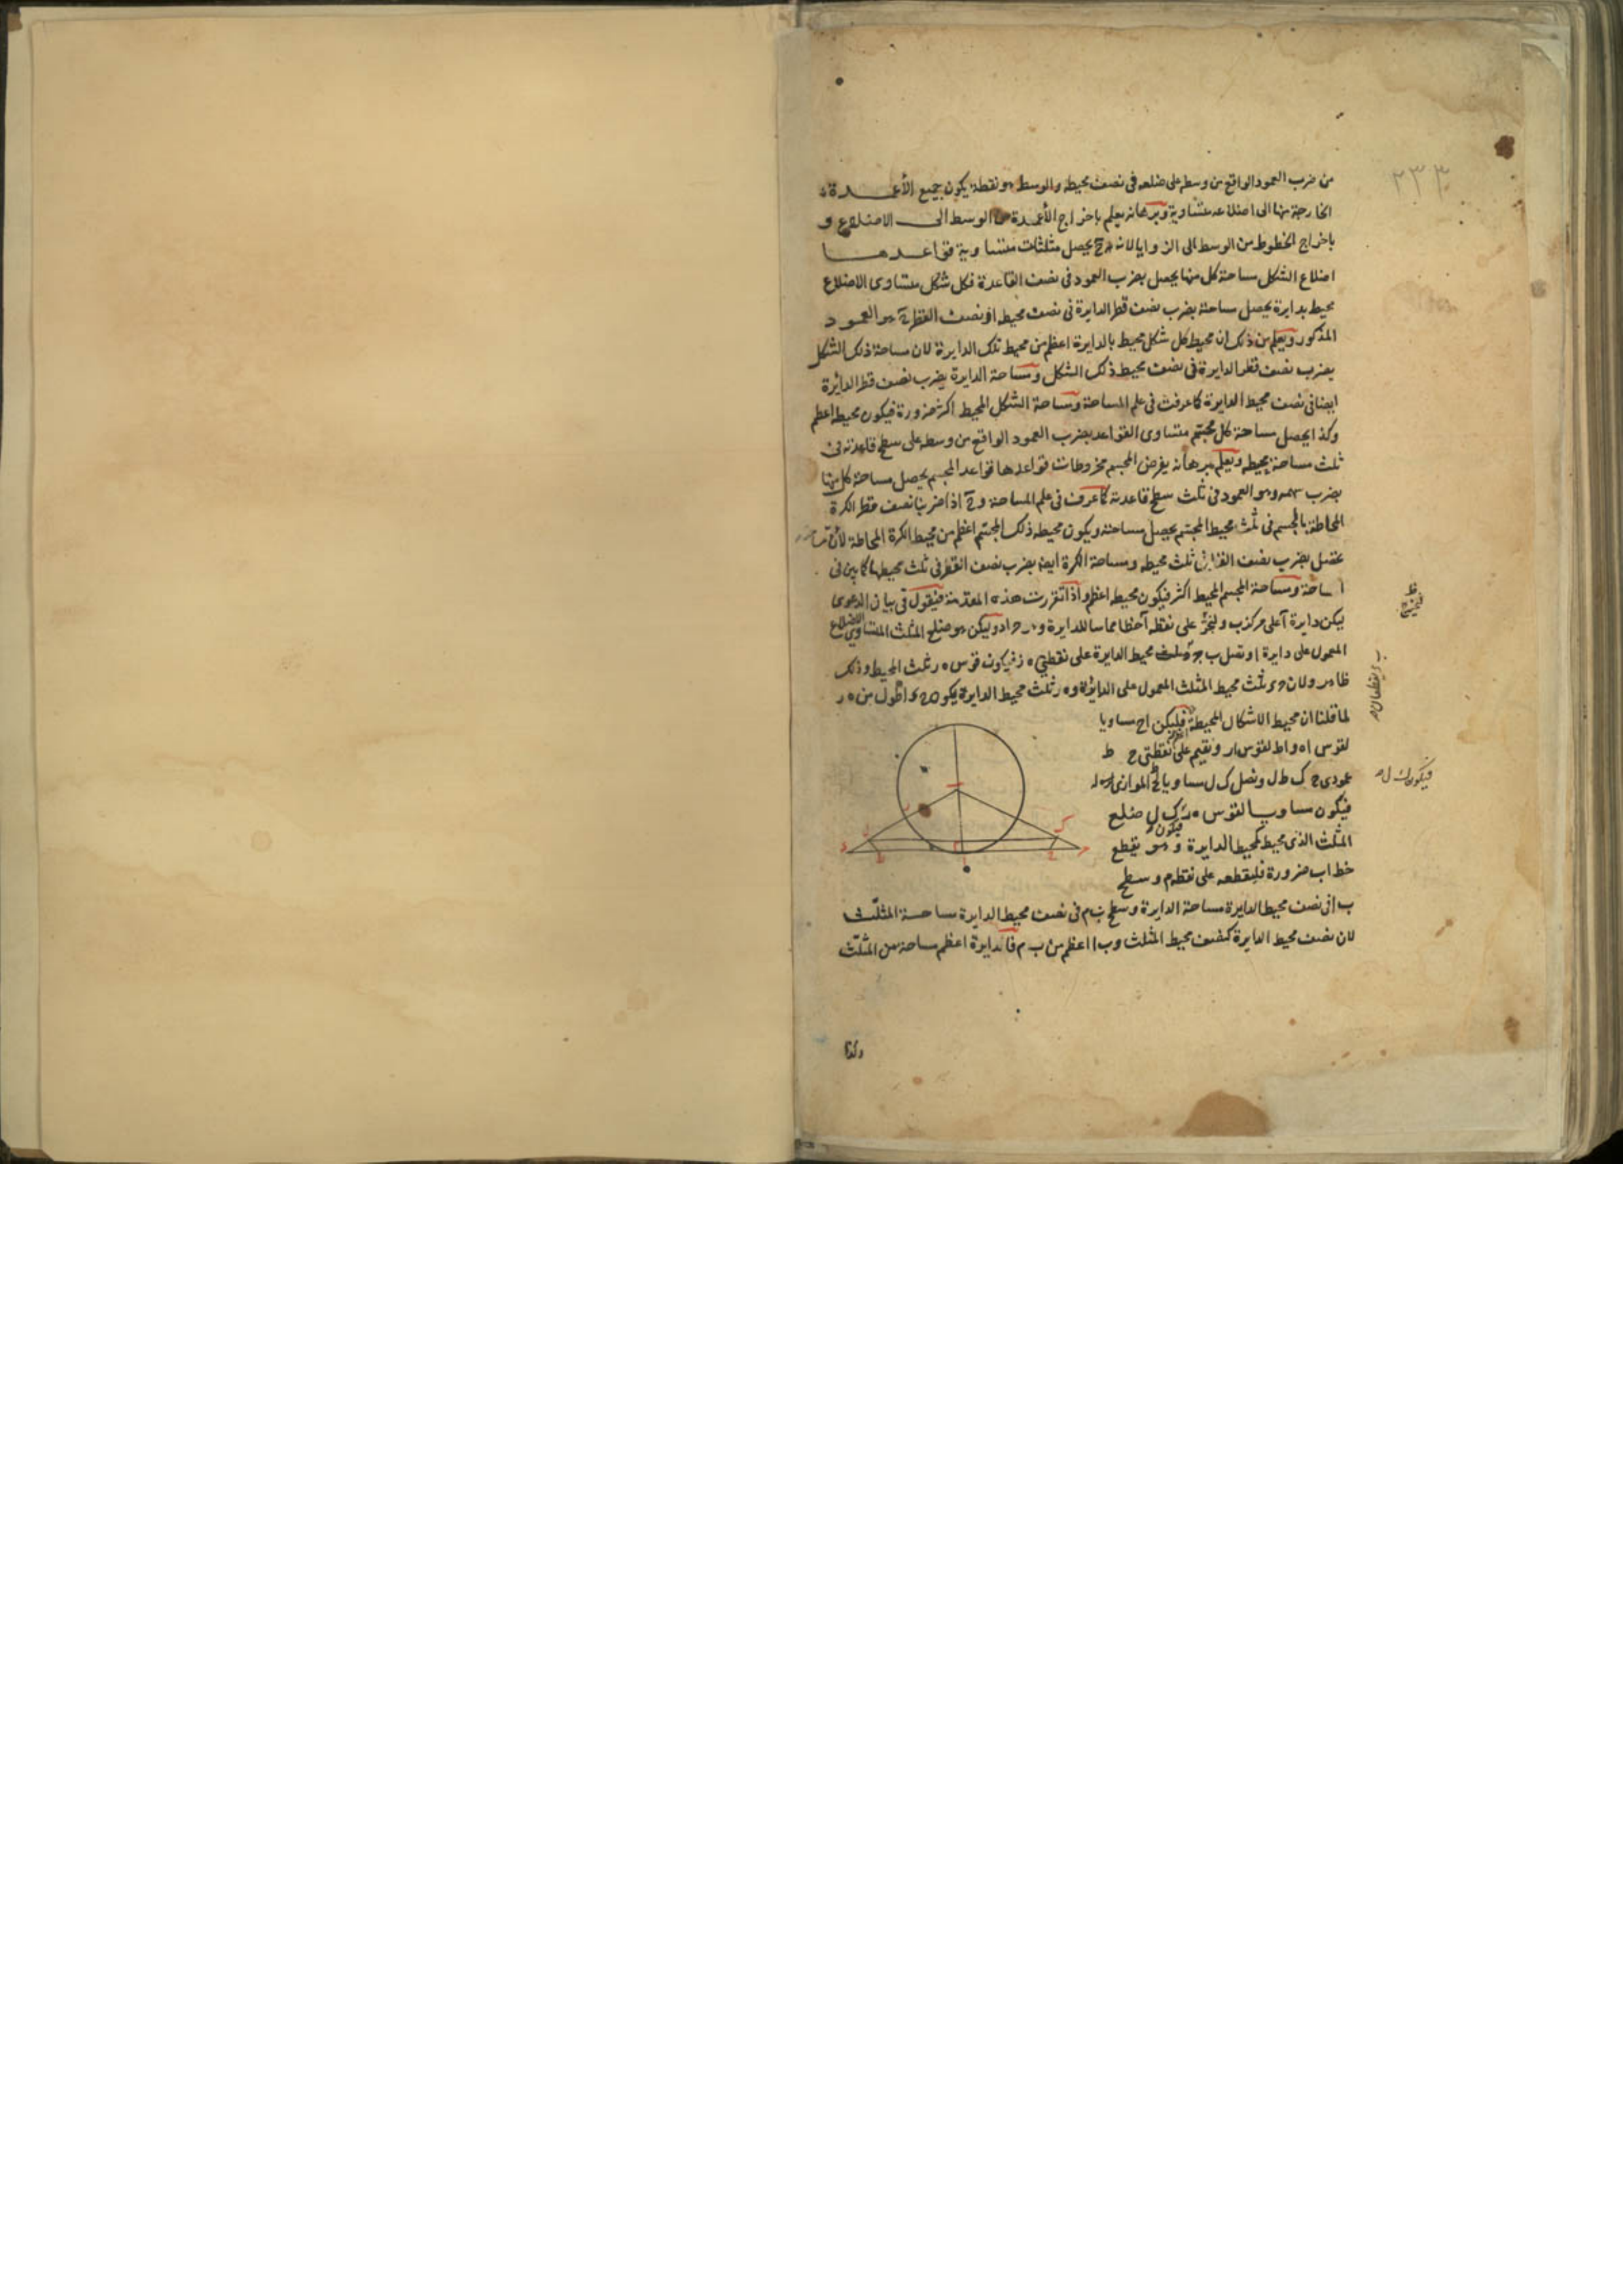 ٢٣٣
من ضرب العمود الواقع من وسطه على ضلعه فى نصف محيطه والوسط هو نقطة يكون جميع الأعمدة
الخارجة منها الى اضلاعه متساوية وبرهانه يعلم باخراج الأعمدة من الوسط الى الاضلاع و
باخراج الخطوط من الوسط الى الزوايا لانه ح يحصل مثلثات متساوية قواعدها
اضلاع الشكل مساحة كل منها يحصل بضرب العمود فى نصف القاعدة فكل شكل متساوى الاضلاع
محيط بدايرة يحصل مساحته بضرب نصف قطر الدايرة فى نصف محيطه اذ نصف القطر ح هو العمود
المذكور ويعلم من ذلك ان محيط كل شكل محيط بالدايرة اعظم من محيط تلك الدايرة لان مساحة ذلك الشكل
بضرب نصف قطر الدايرة فى نصف محيط ذلك الشكل ومساحة الدايرة بضرب نصف قطر الدائرة
ايضا فى نصف محيط الدايرة كما عرفت فى علم المساحة ومساحة الشكل المحيط اكثر ضرورة فيكون محيطه اعظم
وكذا يحصل مساحة كل مجسم متساوى القواعد بضرب العمود الواقع من وسطه على سطح قاعدته فى
ثلث مساحة محيطه ويعلم برهانه بفرض المجسم مخروطات قواعدها قواعد المجسم يحصل مساحة كل منها
بضرب سهمه وهو العمود فى ثلث سطح قاعدته كما عرف فى علم المساحة وح اذا ضربنا نصف قطر الكرة
المحاطة بالمجسم فى ثلث محيط المجسم يحصل مساحته ويكون محيط ذلك المجسم اعظم من محيط الكرة المحاطة لأن
بضرب نصف القطر فى ثلث محيطه ومساحة الكرة ايضا بضرب نصف القطر فى ثلث محيطها كما بين فى
المساحة ومساحة المجسم المحيط اكثر فيكون محيطه اعظم واذا تقررت هذه المقدمة فنقول فى بيان الدعوى
ليكن دايرة آ على مركز ب ولنخرج على نقطة آ خطا مماسا للدايرة وهو ح ا د وليكن هو ضلع المثلث المتساوى الاضلاع
المعمول على دايرة ا ونصل ب ح محيط الدايرة على نقطتى ه ز فيكون قوس ه ر ثلث المحيط وذلك
ظاهر ولان ح د ثلث محيط المثلث المعمول على الدائرة و ه ر ثلث محيط الدايرة يكون ح د اطول من ه ر
لما قلنا ان محيط الاشكال المحيطة اعظم فليكن ا ح مساويا
لقوس ا ه و ا ط لقوس ا ر ونقيم على نقطتى ح ط
عمودى ح ك ط ل ونصل ك ل مساويا ل ح ط الموازى له
فيكون مساويا لقوس ه ر فيكون ك ل ضلع
المثلث الذى محيطه كمحيط الدايرة وهو يقطع
خط ا ب ضرورة فليقطعه على نقطة م وسطح
ب ا فى نصف محيط الدايرة مساحة الدايرة وسطح ب م فى نصف محيط الدايرة مساحة المثلث
لان نصف محيط الدايرة كنصف محيط المثلث و ب ا اعظم من ب م فالدايرة اعظم مساحة من المثلث
وكذا